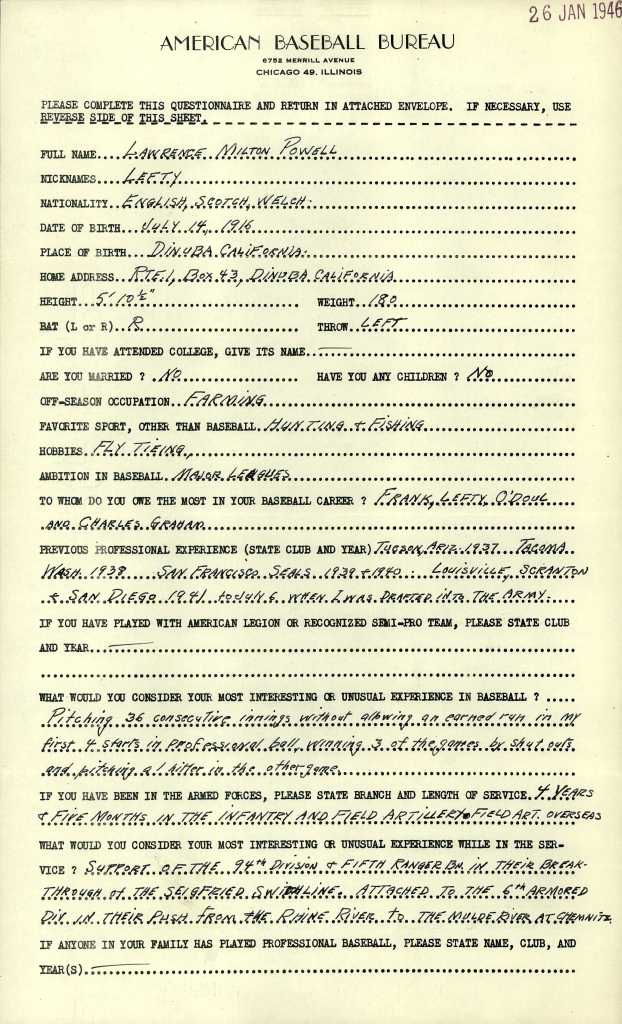 26 JAN 1946
AMERICAN BASEBALL BUREAU
6752 MERRILL AVENUE
CHICAGO 49, ILLINOIS
PLEASE COMPLETE THIS QUESTIONNAIRE AND RETURN IN ATTACHED ENVELOPE. IF NECESSARY, USE
REVERSE SIDE OF THIS SHEET.
FULL NAME...LAWRENCE MILTON POWELL
NICKNAMES...LEFTY
NATIONALITY...ENGLISH, SCOTCH, WELCH.
DATE OF BIRTH...JULY 14, 1916
PLACE OF BIRTH...DINUBA CALIFORNIA.
HOME ADDRESS...RTE.1, BOX 43, DINUBA CALIFORNIA
HEIGHT...5' 10 1/2" WEIGHT...180
BAT (L or R)...R THROW...LEFT
IF YOU HAVE ATTENDED COLLEGE, GIVE ITS NAME...—
ARE YOU MARRIED ? NO HAVE YOU ANY CHILDREN ? NO
OFF-SEASON OCCUPATION...FARMING
FAVORITE SPORT, OTHER THAN BASEBALL...HUNTING & FISHING
HOBBIES...FLY TIEING,
AMBITION IN BASEBALL...MAJOR LEAGUES
TO WHOM DO YOU OWE THE MOST IN YOUR BASEBALL CAREER ? FRANK, LEFTY, O'DOUL
AND CHARLES GRAHAM
PREVIOUS PROFESSIONAL EXPERIENCE (STATE CLUB AND YEAR) TUCSON, ARIZ. 1937 TACOMA
WASH 1938 SAN FRANCISCO SEALS 1939 & 1940. LOUISVILLE, SCRANTON
& SAN DIEGO 1941 to JUN 6 WHEN I WAS DRAFTED INTO THE ARMY.
IF YOU HAVE PLAYED WITH AMERICAN LEGION OR RECOGNIZED SEMI-PRO TEAM, PLEASE STATE CLUB
AND YEAR...—
WHAT WOULD YOU CONSIDER YOUR MOST INTERESTING OR UNUSUAL EXPERIENCE IN BASEBALL ? .....
Pitching 36 consecutive innings without allowing an earned run in my
first 4 starts in professional ball, winning 3 of the games by shut outs
and pitching a 1 hitter in the other game.
IF YOU HAVE BEEN IN THE ARMED FORCES, PLEASE STATE BRANCH AND LENGTH OF SERVICE. 4 YEARS
& FIVE MONTHS IN THE INFANTRY AND FIELD ARTILLERY. FIELD ART. OVERSEAS
WHAT WOULD YOU CONSIDER YOUR MOST INTERESTING OR UNUSUAL EXPERIENCE WHILE IN THE SER-
VICE ? SUPPORT OF THE 94th DIVISION & FIFTH RANGER BN. IN THEIR BREAK-
THROUGH of THE SEIGFRIED SWITCH LINE. ATTACHED TO THE 6th ARMORED
DIV IN THEIR PUSH FROM the RHINE RIVER to THE MULDE RIVER AT CHEMNITZ.
IF ANYONE IN YOUR FAMILY HAS PLAYED PROFESSIONAL BASEBALL, PLEASE STATE NAME, CLUB, AND
YEAR(S)...—